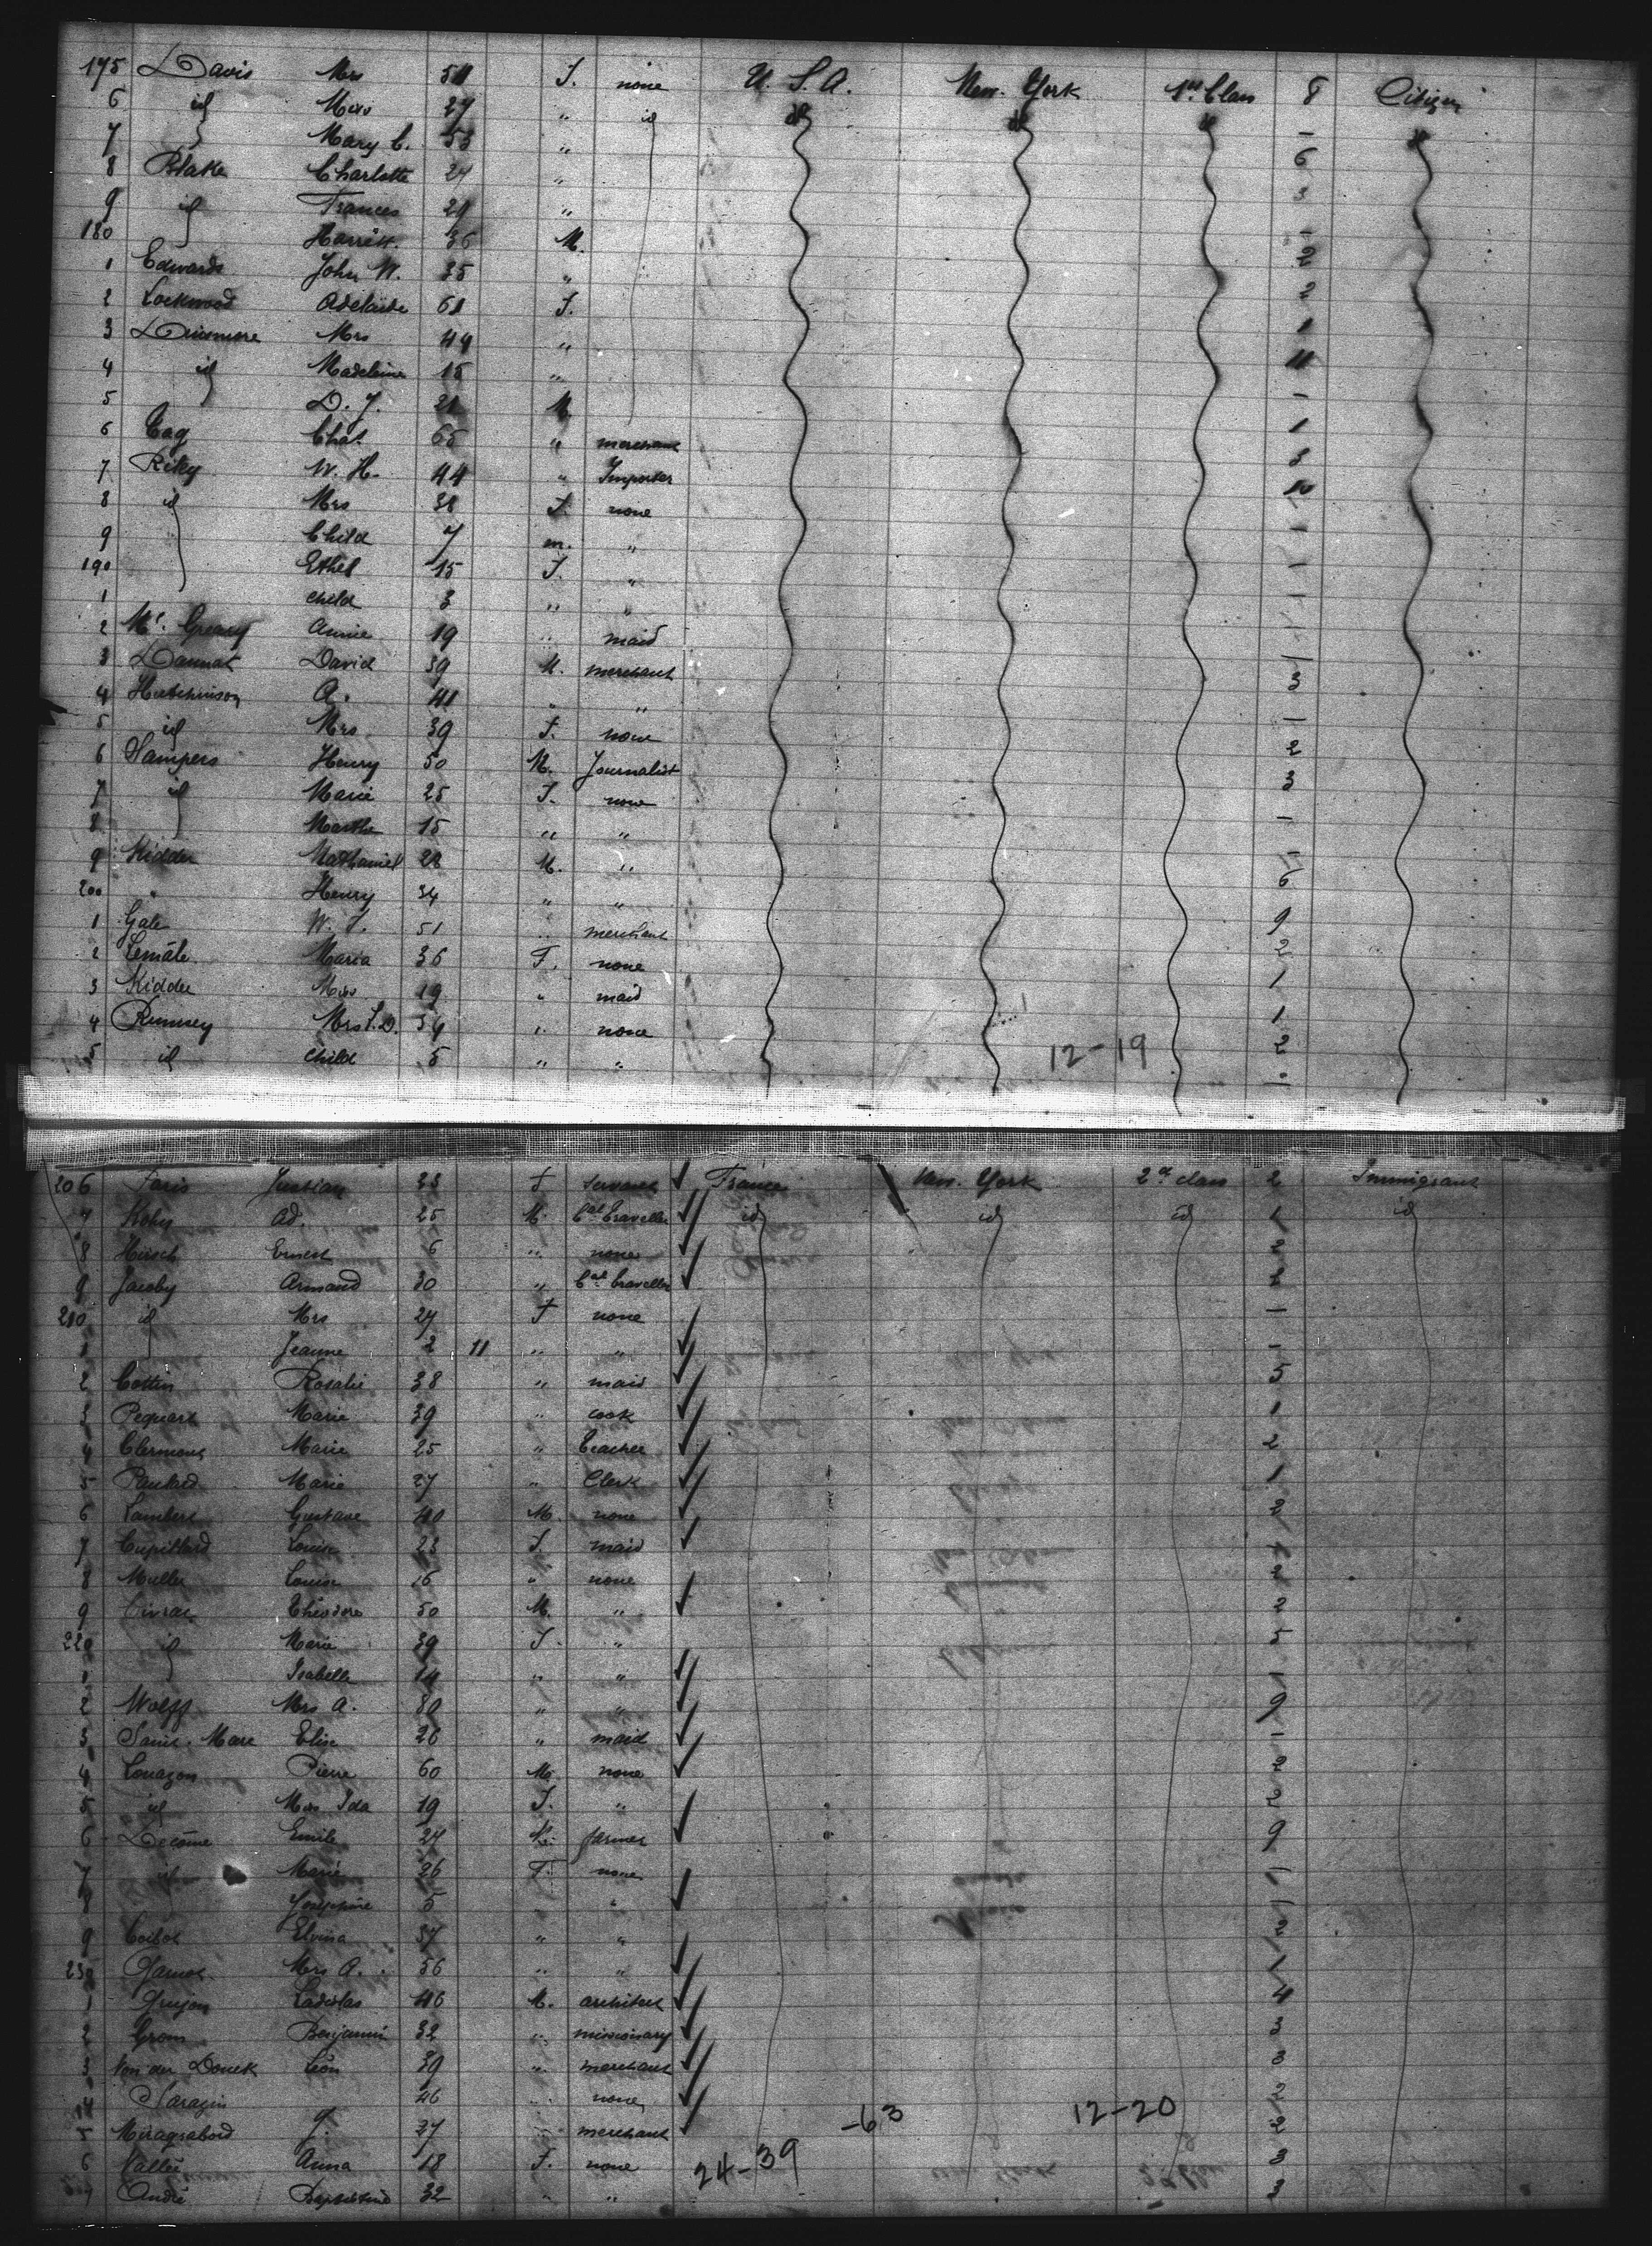 175 Davis Mrs 51 F. none U. S. A. New. York 1st Class 8 Citizen
6 id Miss 27 " id id id id - id
7 Mary C. 53 " 6
8 Blake Charlotte 24 " 3
9 id Frances 29 " -
180 Harriett. 36 M. 2
1 Edwards John W. 35 " 2
2 Lockwood Adelaide 61 F. 1
3 Dinsmore Mrs 44 " 11
4 id Madeleine 15 " -
5 D. J. 21 M. 1
6 Cag Chas. 65 " merchant 3
7 Riley W. H. 44 " Importer 10
8 id Mrs 38 F. none -
9 Child 7 m. " -
190 Ethel 15 F. " -
1 child 3 " " -
2 Mc. Greary Annie 19 " maid 1
3 Dannat David 39 M. merchant 3
4 Hutchinson A. 41 " " -
5 id Mrs 39 F. none 2
6 Sampers Henry 50 M. Journalist 3
7 id Marie 25 F. none -
8 Marthe 15 " " -
9 Kidder Nathaniel 28 M. " 6
200 " Henry 34 " "
1 Gale W. J. 51 " merchant 9
2 Lemâle Maria 36 F. none 2
3 Kidder Miss 19 " maid 1
4 Rumsey Mrs L. D. 34 " none 1
5 id child 5 " " 2
12-19
206 Paris 23 F servant France New. York 2d class 2 Immigrant
7 Kohn Ad. 25 M. Cal traveller id id id 1 id
8 Hirsch Ernest 6 " none 2
9 Jacoby Armand 30 " Cal traveller 2
210 id Mrs 27 F none -
1 Jeanne 2 11 " " -
2 Cottin Rosalie 38 " maid 5
3 Pequart Marie 39 " cook 1
4 Clermont Marie 25 " teacher 2
5 Paulard Marie 27 " Clerk 1
6 Lambert Gustave 40 M. none 2
7 Cupillard Louise 23 F. maid 1
8 Muller Louise 16 " none 2
9 Civrac Théodore 50 M. " 2
220 id Marie 39 F. " 5
1 Isabelle 14 " " 1
2 Wolff Mrs A. 80 " " 9
3 Saint. Marc Elise 26 " maid -
4 Louazon Pierre 60 M. none 2
5 id Miss Ida 19 F. " 2
6 Decôme Emile 27 M. farmer 9
7 id Marie 26 F. none 1
8 Joséphine 5 " 1
9 Coibot Elvina 37 " " 2
230 Garnot Mrs A. 56 " " 1
1 Grujon Ladislas 46 M. architect 4
2 Grom Benjamin 32 " missionary 3
3 Von der Donck Léon 39 " merchant 3
4 Sarazin 46 " none 2
5 Miragsabord J. 37 " merchant 2
-63 12-20
6 Vallée Anna 18 F. none 3
24-39
7 André 32 " " 3